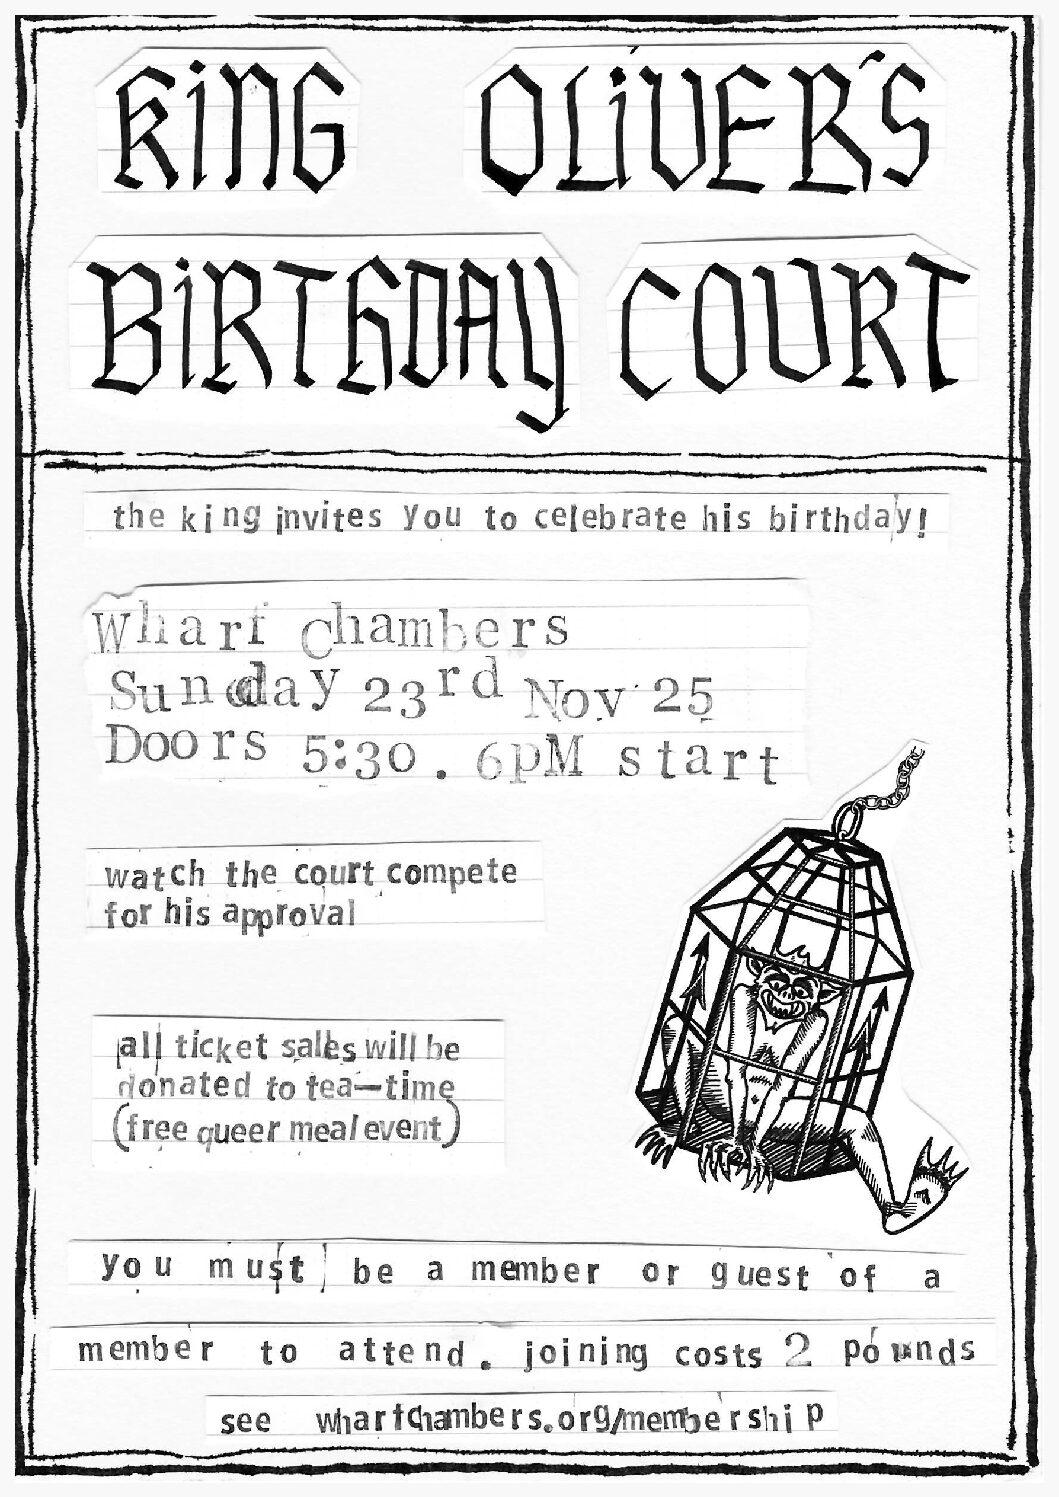 KiNG OLiVER'S
BiRTHDAY COURT
the king invites you to celebrate his birthday!
Wharf Chambers
Sunday 23rd Nov 25
Doors 5:30. 6pM start
watch the court compete
for his approval
all ticket sales will be
donated to tea-time
(free queer meal event)
you must be a member or guest of a
member to attend. joining costs 2 pounds
see wharfchambers.org/membership